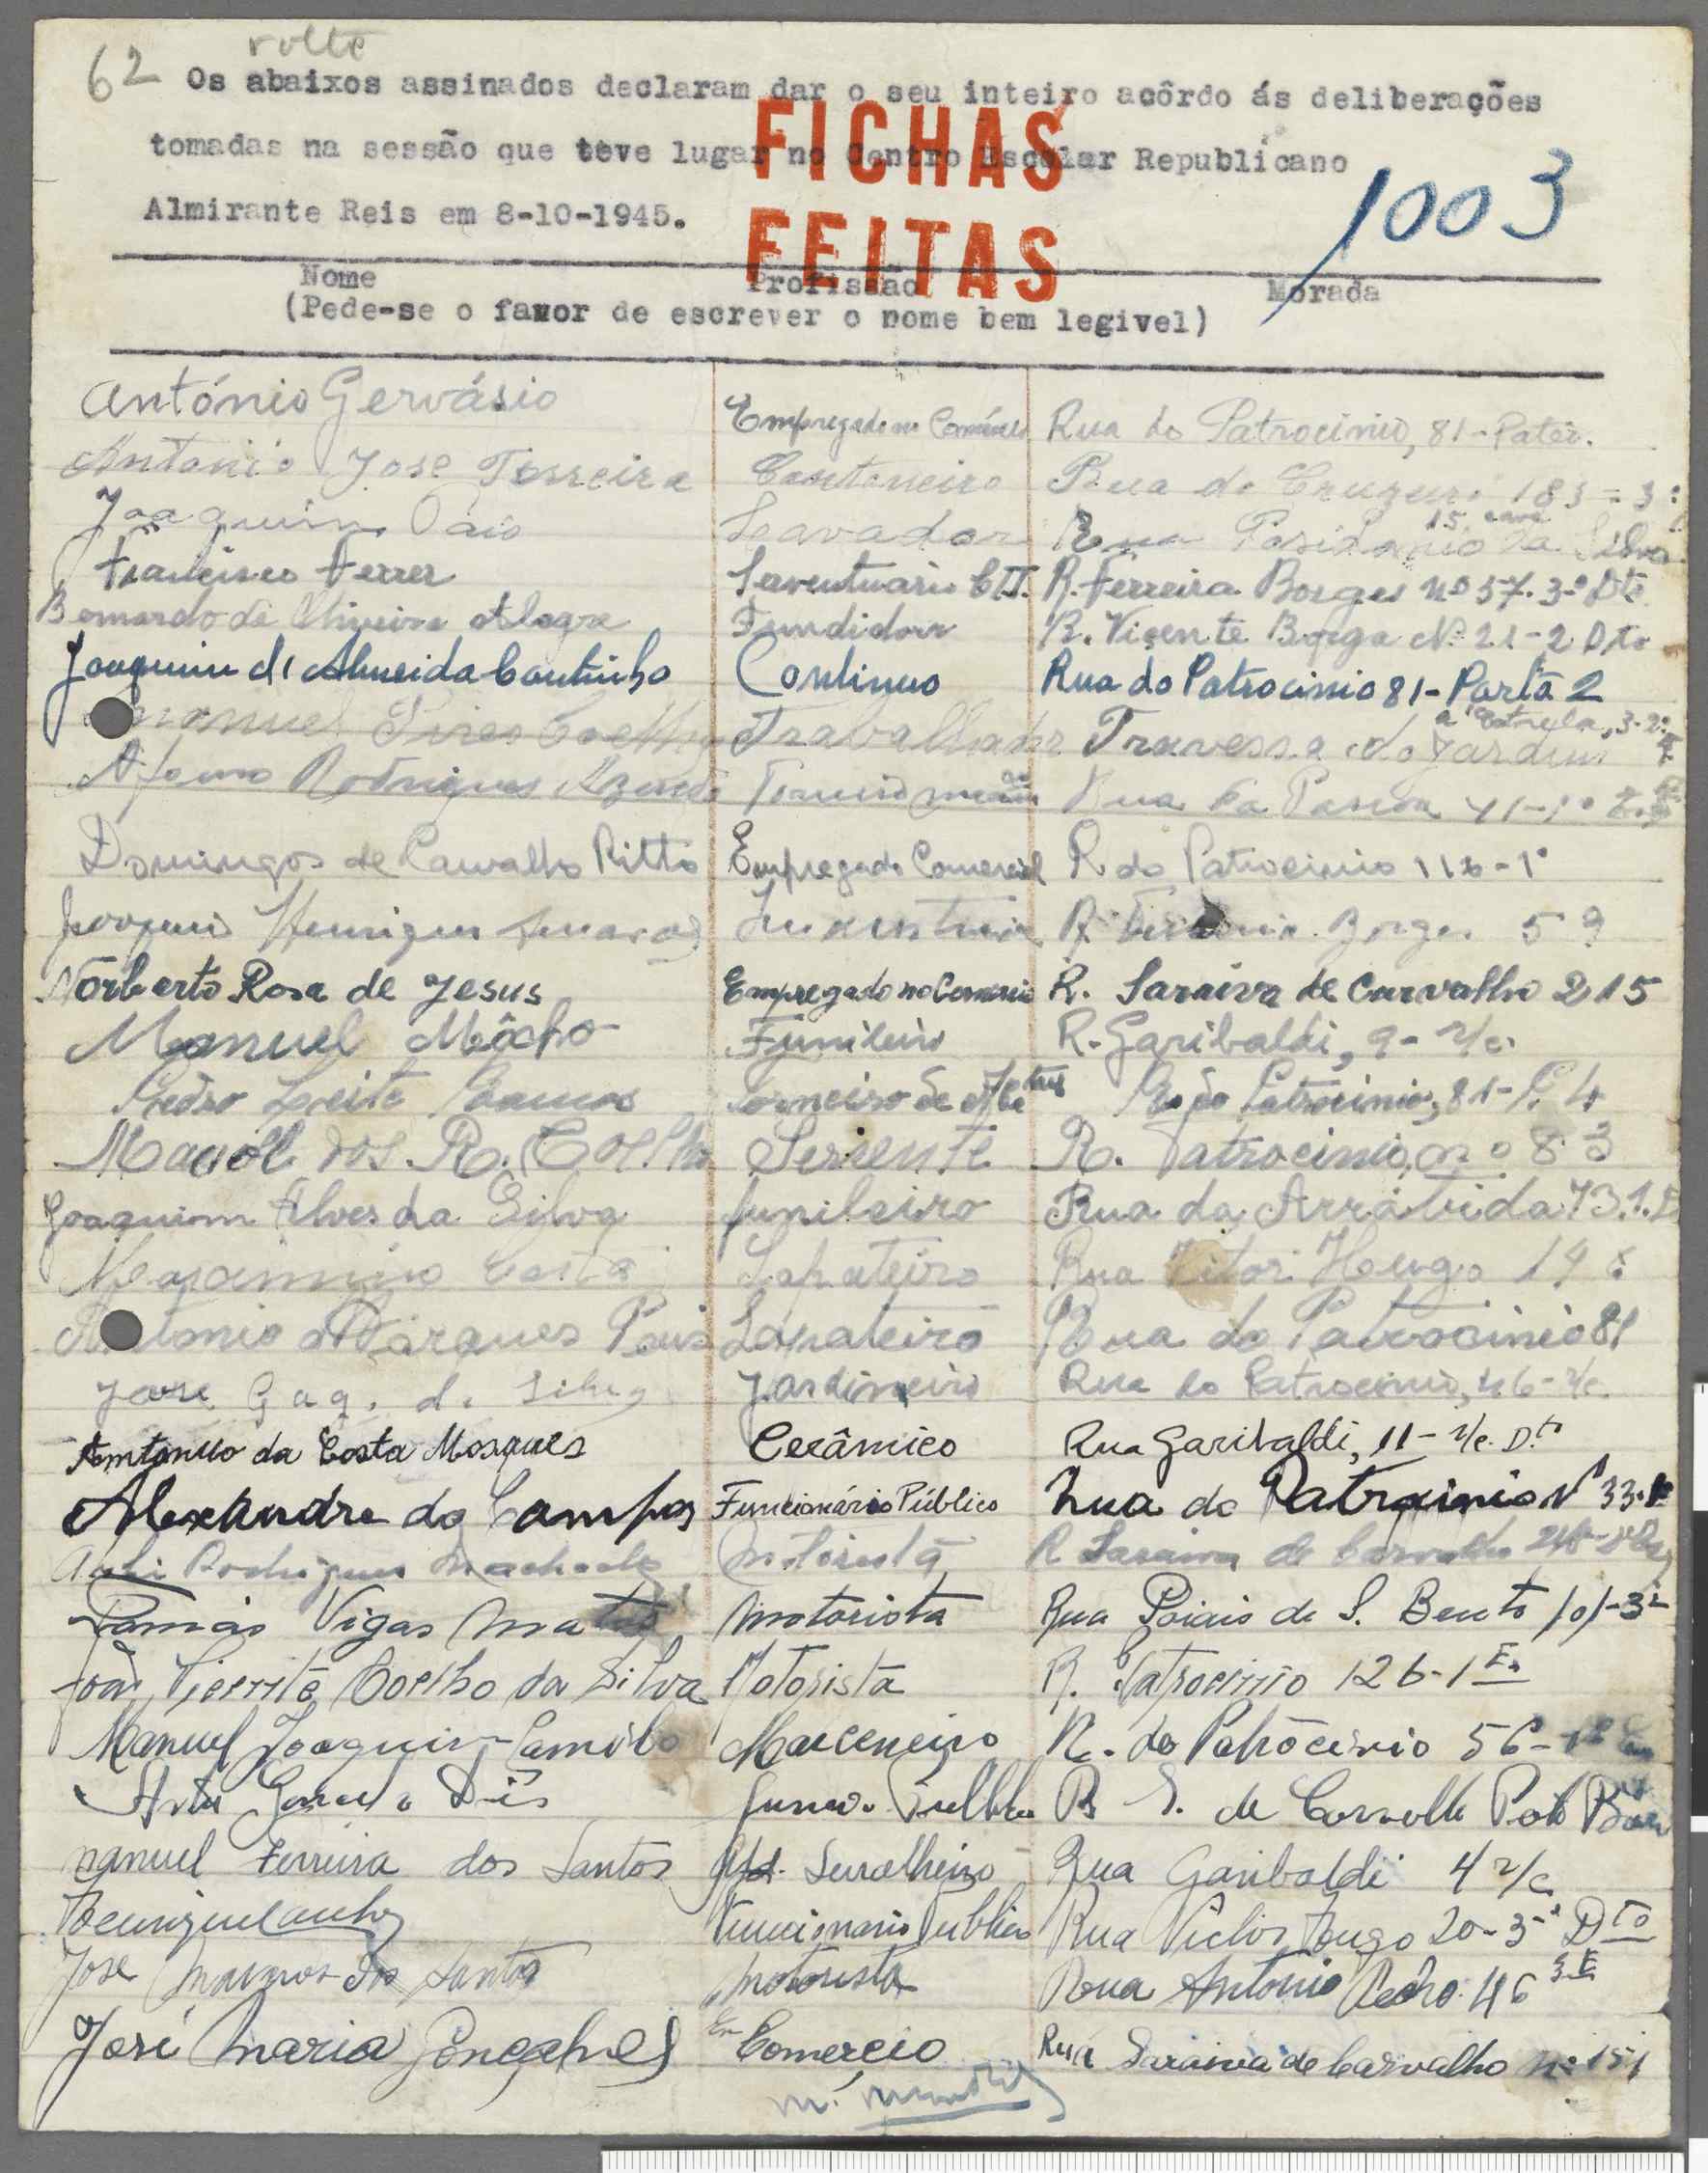 62 volte
Os abaixos assinados declaram dar o seu inteiro acôrdo ás deliberações
tomadas na sessão que teve lugar no Centro Escolar Republicano
Almirante Reis em 8-10-1945.
FICHAS
FEITAS
1003
Nome Profissão Morada
(Pede-se o favor de escrever o nome bem legivel)
António Gervásio Empregado no Comércio Rua do Patrocinio, 81-Patéo.
Antonio Jose Ferreira Cantoneiro Rua do 183 = 3º
Joaquim Paio Lavador Rua Posidonio da Silva 15 cave
Francisco Ferrer Serventuário CTT. R. Ferreira Borges nº 57. 3º Dto
Bernardo de Oliveira Alegre Fundidor R. Vicente Borga Nº 21-2 Dto
Joaquim de Almeida Coutinho Continuo Rua do Patrocinio 81-Porta 2
Manuel Pires Coelho Trabalhador Travessa do Jardim á Estrela, 3-2º
Rodrigues Rua da 41-1º
Domingos de Carvalho Ritto Empregado Comercial R do Patrocinio 116-1º
Joaquim Henriques R. Borges 59
Norberto Rosa de Jesus Empregado no Comercio R. Saraiva de Carvalho 215
Manuel Môcho Funileiro R. Garibaldi, 9- r/c.
Pedro Leite Torneiro de R. do Patrocinio, 81-P. 4
dos R. Coelho Serente R. Patrocinio, nº 83
Joaquim Alves da Silva funileiro Rua da Arrábida 73.1.E
Costa Sapateiro Rua Vitor Hougo
Antonio Marques Pais Sapateiro Rua do Patrocinio 81
Jose Jardineiro Rua do Patrocinio, 46-r/c.
Antonio da Costa Mosques Cerâmico Rua Garibaldi, 11- r/c. D.to
Alexandre do Campos Funcionário Público Rua do Patrocinio Nº 33.
Rodrigues Machado Motorista R Saraiva de Carvalho
Tomás Vigas Matos Motorista Rua Poiais de S. Bento 101-3º
João Coelho da Silva Motorista R. Patrocinio 126-1º E.
Manuel Joaquim Camilo Marceneiro R. do Patrocinio 56-1º
Artur R S. de
Manuel Ferreira dos Santos Serralheiro Rua Garibaldi 4 r/c
Funcionario Publico Rua Victor Hugo 20-3º Dto
Jose dos Santos Motorista Rua Antonio Pedro 46 3º E
José Maria Gonçalves Em Comercio Rua Saraiva de Carvalho nº 151